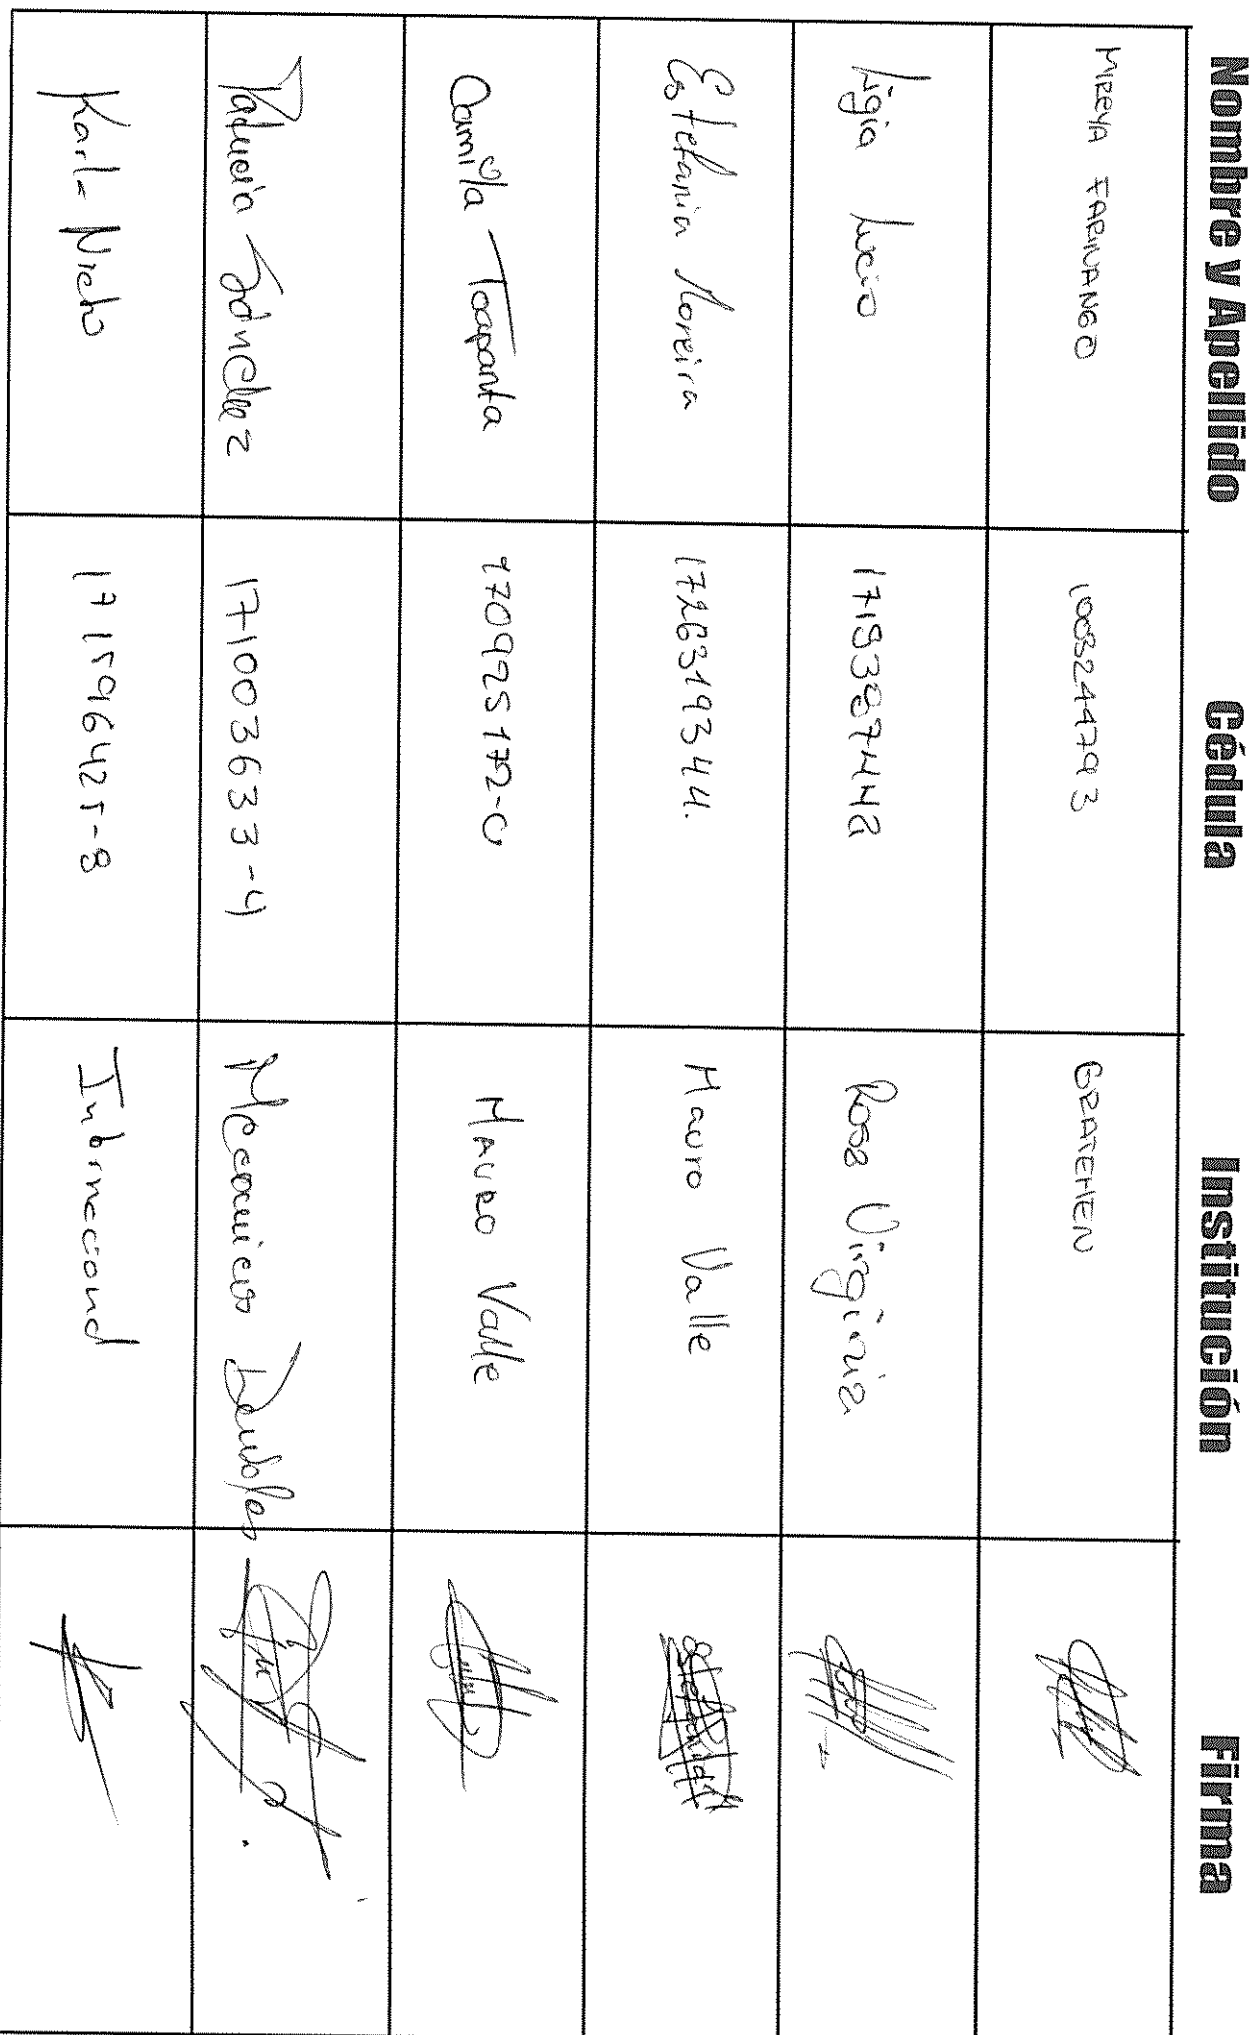 Nombre y Apellido Cédula Institución Firma
MIREYA FARINANGO 1003244793 GRATEHEN
Ligia Lucio 1719387442 Rosa Virginia
Estefania Moreira 1726319344. Mauro Valle
Camila Toapanta 170925172-0 MAURO Valle
Patricia Sánchez 171003633-4 Mecanicos
Karla Nieto 171596425-8